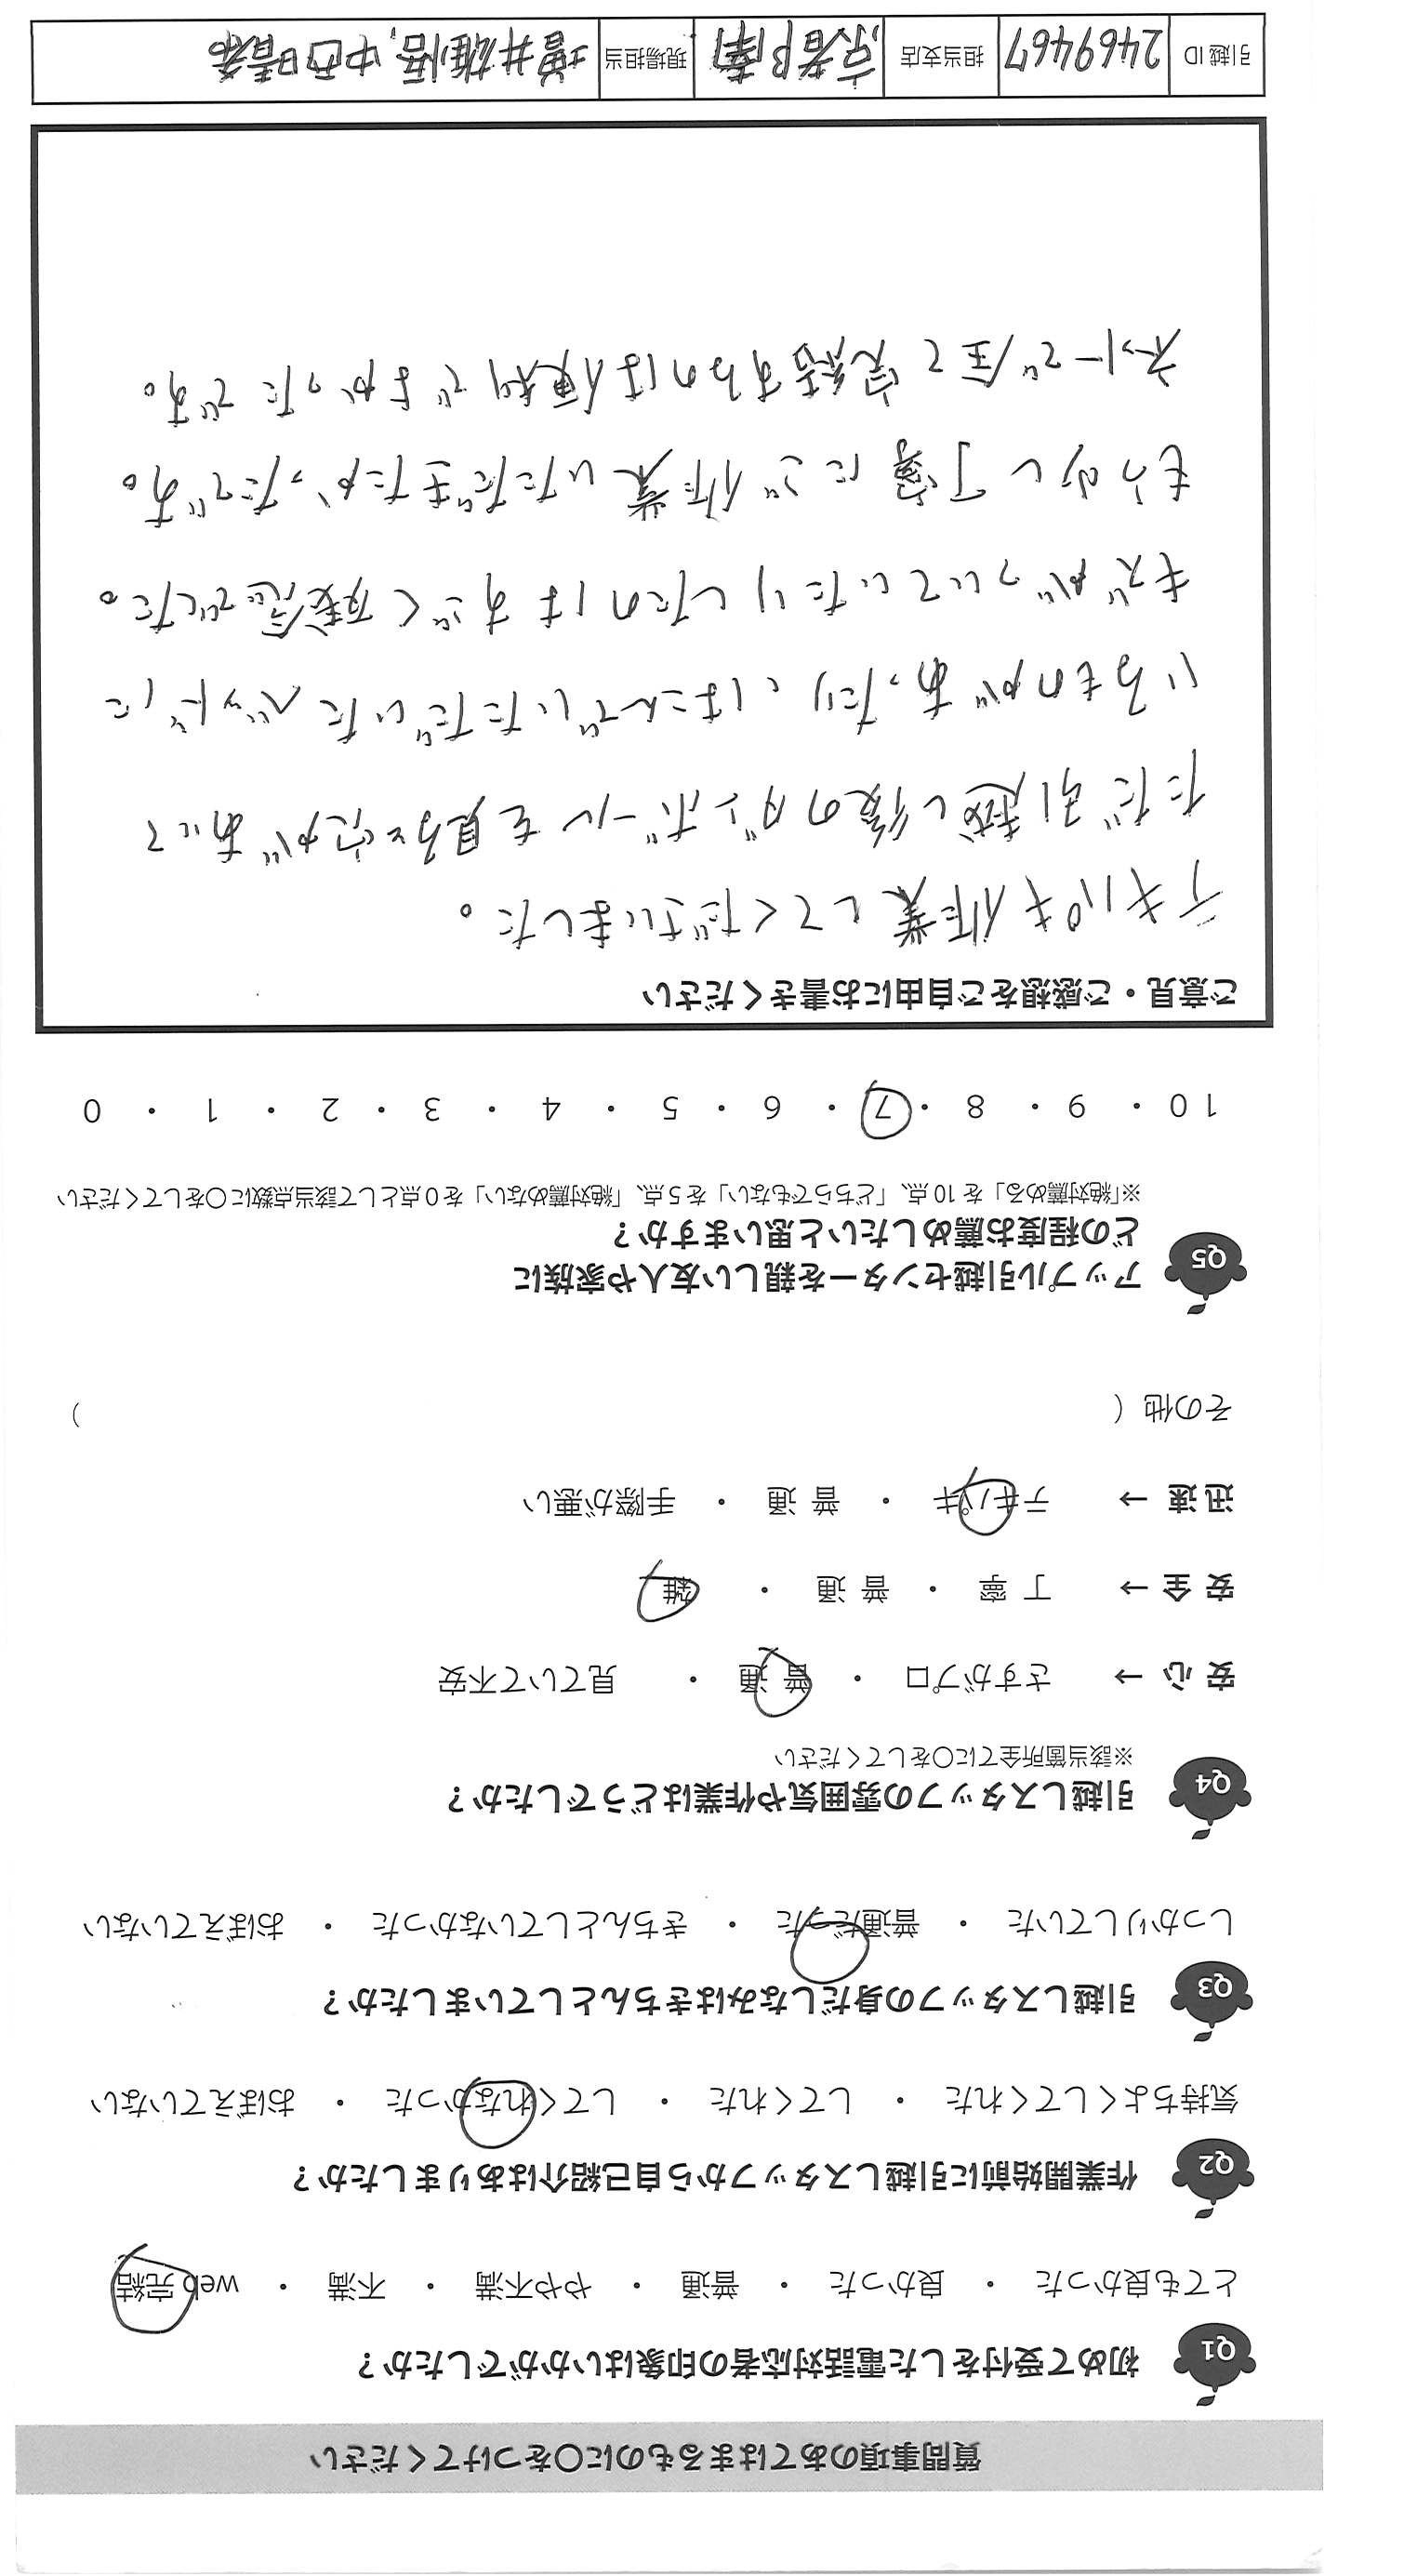 質問事項のあてはまるものに〇をつけてください
Q1 初めて受付をした電話対応者の印象はいかがでしたか？
とても良かった ・ 良かった ・ 普通 ・ やや不満 ・ 不満 ・ web 完結
Q2 作業開始前に引越しスタッフから自己紹介はありましたか？
気持ちよくしてくれた ・ してくれた ・ してくれなかった ・ おぼえていない
Q3 引越しスタッフの身だしなみはきちんとしていましたか？
しっかりしていた ・ 普通だった ・ きちんとしていなかった ・ おぼえていない
Q4 引越しスタッフの雰囲気や作業はどうでしたか？
※該当箇所全てに〇をしてください
安 心 → さすがプロ ・ 普 通 ・ 見ていて不安
安 全 → 丁 寧 ・ 普 通 ・ 雑
迅 速 → テキパキ ・ 普 通 ・ 手際が悪い
その他（ ）
Q5 アップル引越センターを親しい友人や家族に
どの程度お薦めしたいと思いますか？
※「絶対薦める」を 10 点、「どちらでもない」を 5 点、「絶対薦めない」を 0 点として該当点数に〇をしてください
10 ・ 9 ・ 8 ・ 7 ・ 6 ・ 5 ・ 4 ・ 3 ・ 2 ・ 1 ・ 0
ご意見・ご感想をご自由にお書きください
テキパキ作業してくださいました。
ただ引越し後のダンボールを見ると穴があいて
いるものがあったり、はこんでいただいたベッドに
キズがついていたりしたのはすごく残念でした。
もう少し丁寧にご作業いただきたかったです。
ネットで全て完結するのは便利でよかったです。
引越 ID 2469467 担当支店 京都南 現場担当 増井雄悟, 中西晴希